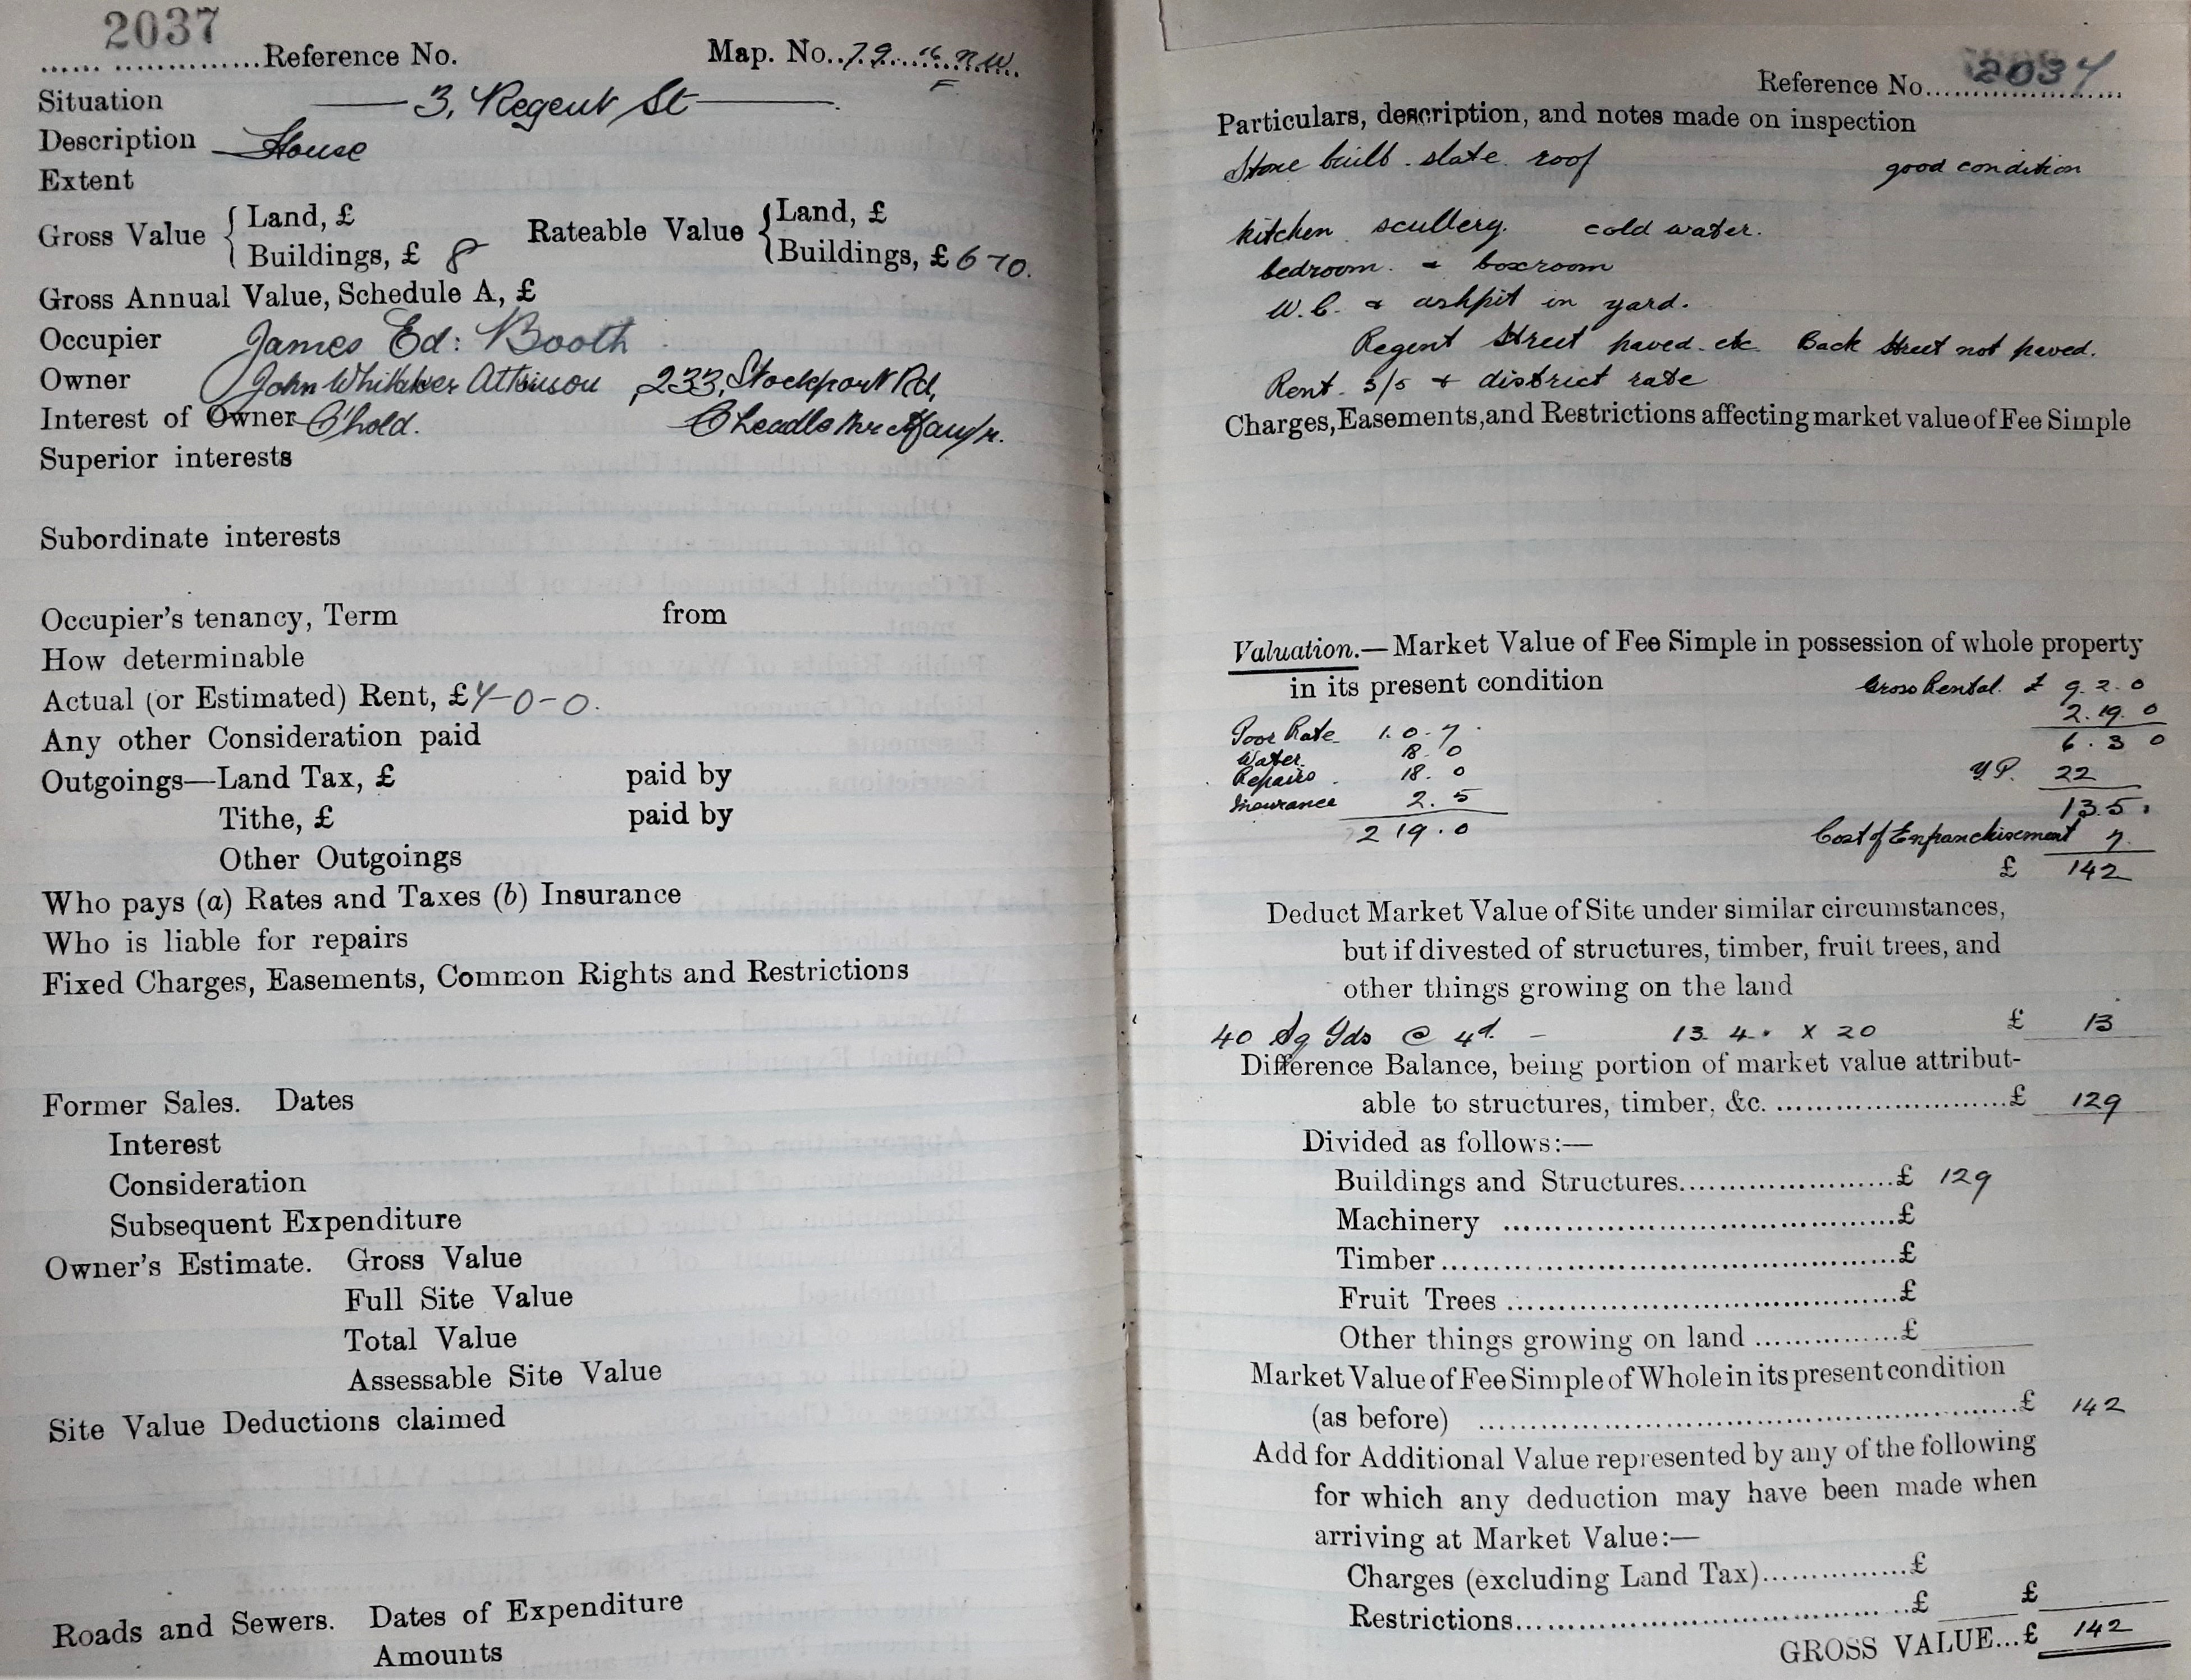 2037
Reference No. Map. No. 79
Situation 3, Regent St
Description House
Extent
Gross Value { Land, £ Rateable Value { Land, £
Buildings, £ 8 Buildings, £ 6 - 10.
Gross Annual Value, Schedule A, £
Occupier James Ed: Booth
Owner John Whitaker Atkinson 233, Stockport Rd,
Interest of Owner C'hold. Cheadle
Superior interests
Subordinate interests
Occupier's tenancy, Term from
How determinable
Actual (or Estimated) Rent, £ -0-0.
Any other Consideration paid
Outgoings—Land Tax, £ paid by
Tithe, £ paid by
Other Outgoings
Who pays (a) Rates and Taxes (b) Insurance
Who is liable for repairs
Fixed Charges, Easements, Common Rights and Restrictions
Former Sales. Dates
Interest
Consideration
Subsequent Expenditure
Owner's Estimate. Gross Value
Full Site Value
Total Value
Assessable Site Value
Site Value Deductions claimed
Roads and Sewers. Dates of Expenditure
Amounts
Reference No. 2037
Particulars, description, and notes made on inspection
Stone built. slate roof good condition
kitchen scullery. cold water.
bedroom. & boxroom
W.C. & ashpit in yard.
Regent Street paved. etc. Back Street not paved.
Rent. & district rate
Charges, Easements, and Restrictions affecting market value of Fee Simple
Valuation.—Market Value of Fee Simple in possession of whole property
in its present condition Gross Rental. £ 9. 2. 0
2. 19. 0
Poor Rate 1. 0. 7 6. 3 0
Water. 18. 0
Repairs. 18. 0 Y.P. 22
Insurance 2. 5 135.
2 19. 0 Cost of Enfranchisement 7.
£ 142
Deduct Market Value of Site under similar circumstances,
but if divested of structures, timber, fruit trees, and
other things growing on the land
40 Sq Yds @ 4d. - 13. 4. X 20 £ 13
Difference Balance, being portion of market value attribut-
able to structures, timber, &c. £ 129
Divided as follows:—
Buildings and Structures £ 129
Machinery £
Timber £
Fruit Trees £
Other things growing on land £
Market Value of Fee Simple of Whole in its present condition
(as before) £ 142
Add for Additional Value represented by any of the following
for which any deduction may have been made when
arriving at Market Value:—
Charges (excluding Land Tax) £
Restrictions £ £
GROSS VALUE...£ 142